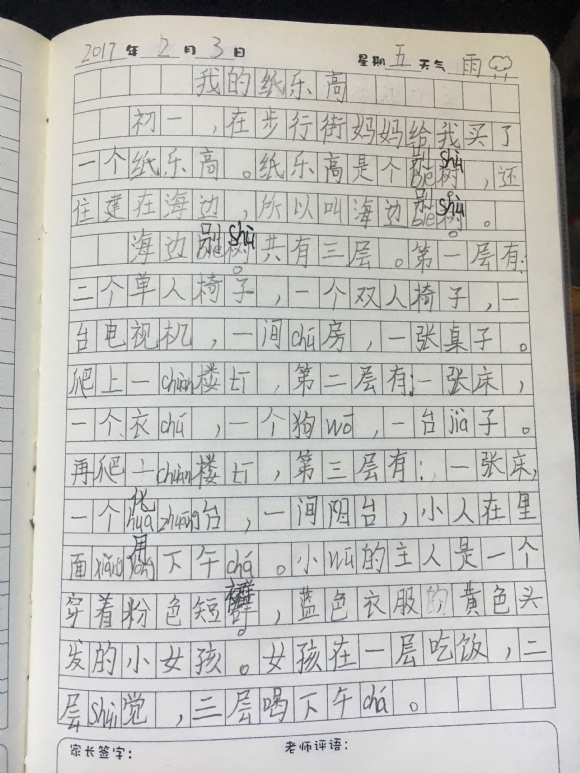 2017年2月3日 星期五 天气雨
我的纸乐高
初一,在步行街妈妈给我买了
一个纸乐高。纸乐高是个别bié树shù,还
住建在海边,所以叫海边别bié树shù。
海边别bié树shù共有三层。第一层有:
二个单人椅子,一个双人椅子,一
台电视机,一间chú房,一张桌子。
爬上一chuàn楼tī,第二层有:一张床,
一个衣chú,一个狗wō,一台jià子。
再爬上一chuàn楼tī,第三层有:,一张床,
一个化huàzhuāng台,一间阳台,小人在里
面xiǎng用yòng下午chá。小wū的主人是一个
穿着粉色短裙,蓝色衣服的黄色头
发的小女孩。女孩在一层吃饭,二
层shuì觉,三层喝下午chá。
家长签字: 老师评语: